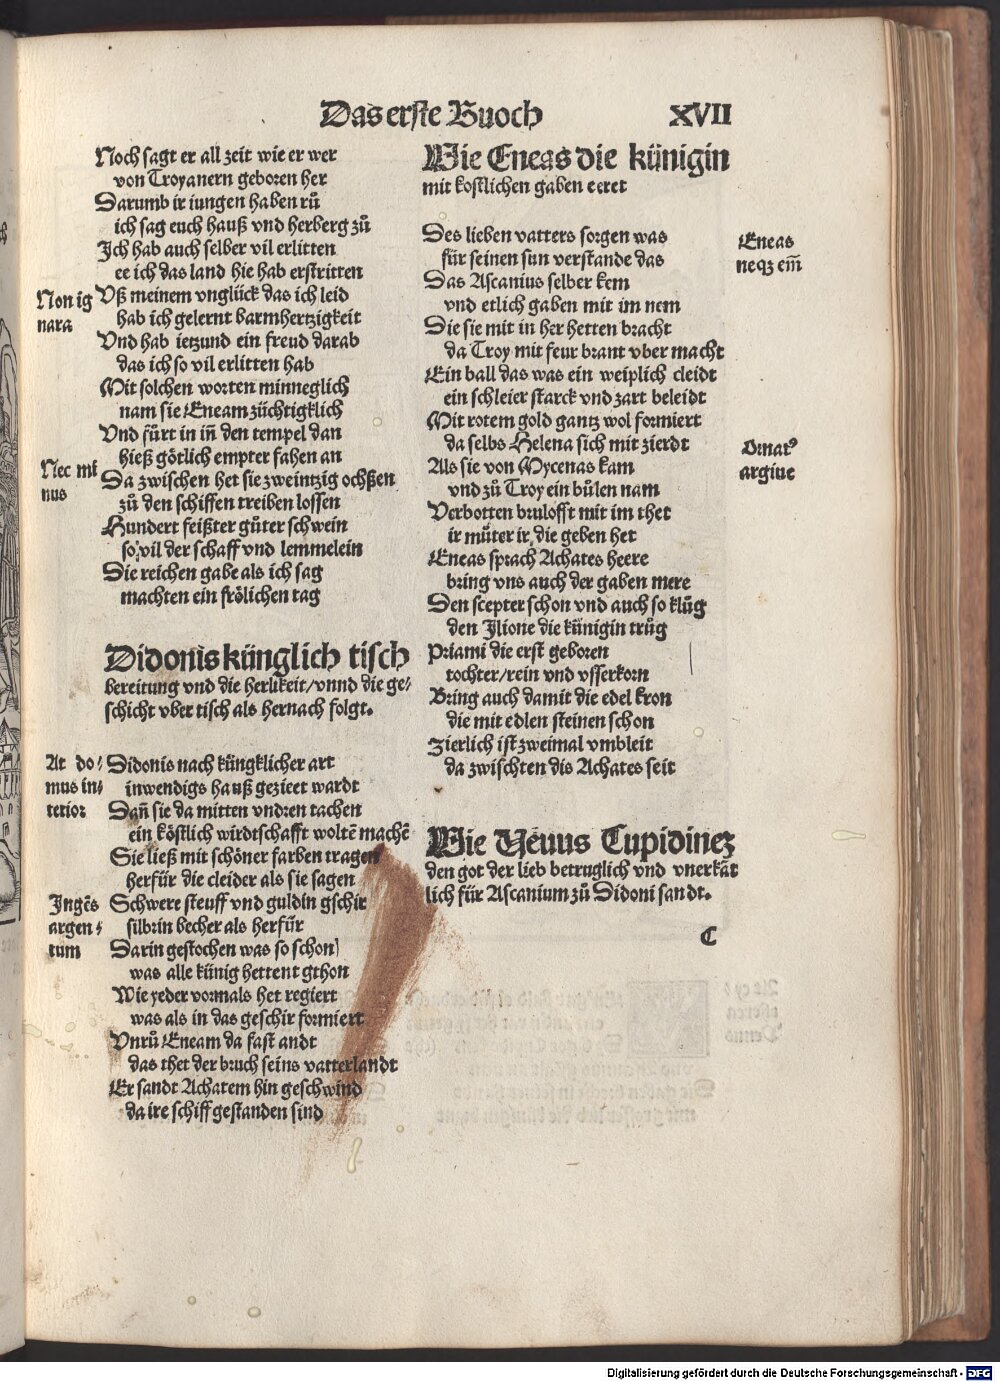 Das erste Buoch
XVII
Noch sagt er all zeit wie er wer
von Troyanern geboren her
Darumb ir iungen haben rů
ich sag euch hauß vnd herberg zů
Ich hab auch selber vil erlitten
ee ich das land hie hab erstritten
Non ig
nara
Vß meinem vnglück das ich leid
hab ich gelernt barmhertzigkeit
Vnd hab ietzund ein freud darab
das ich so vil erlitten hab
Mit solchen worten minneglich
nam sie Eneam züchtigklich
Vnd fůrt in iñ den tempel dan
hieß götlich empter fahen an
Nec mi
nus
Da zwischen het sie zweintzig ochßen
zů den schiffen treiben lossen
Hundert feißter gůter schwein
so vil der schaff vnd lemmelein
Die reichen gabe als ich sag
machten ein frölichen tag
Didonis künglich tisch
bereitung vnd die herlikeit/vnnd die ge⸗
schicht vber tisch als hernach folgt.
At do⸗
mus in⸗
terior
Didonis nach küngklicher art
inwendigs hauß gezieet wardt
Dañ sie da mitten vndren tachen
ein köstlich wirdtschafft woltē machē
Sie ließ mit schöner farben tragen
herfür die cleider als sie sagen
Ingēs
argen⸗
tum
Schwere steuff vnd guldin gschir
silbrin becher als herfür
Darin gestochen was so schon
was alle künig hettent gthon
Wie yeder vormals het regiert
was als in das geschir formiert
Vnrů Eneam da fast andt
das thet der bruch seins vatterlandt
Er sandt Achatem hin geschwind
da ire schiff gestanden sind
Wie Eneas die künigin
mit kostlichen gaben eeret
Des lieben vatters sorgen was
für seinen sun verstande das
Eneas
neqꝫ em̄
Das Ascanius selber kem
vnd etlich gaben mit im nem
Die sie mit in her hetten bracht
da Troy mit feur brant vber macht
Ein ball das was ein weiplich cleidt
ein schleier starck vnd zart beleidt
Mit rotem gold gantz wol formiert
da selbs Helena sich mit zierdt
Ornatꝰ
argiue
Als sie von Mycenas kam
vnd zů Troy ein bůlen nam
Verbotten brulofft mit im thet
ir můter ir die geben het
Eneas sprach Achates heere
bring vns auch der gaben mere
Den scepter schon vnd auch so klůg
den Ilione die künigin trůg
Priami die erst geboren
tochter/rein vnd vsserkorn
Bring auch damit die edel kron
die mit edlen steinen schon
Zierlich ist zweimal vmbleit
da zwischten dis Achates seit
Wie Venus Cupidinez
den got der lieb betruglich vnd vnerkāt
lich für Ascanium zů Didoni sandt.
C
Digitalisierung gefördert durch die Deutsche Forschungsgemeinschaft - DFG